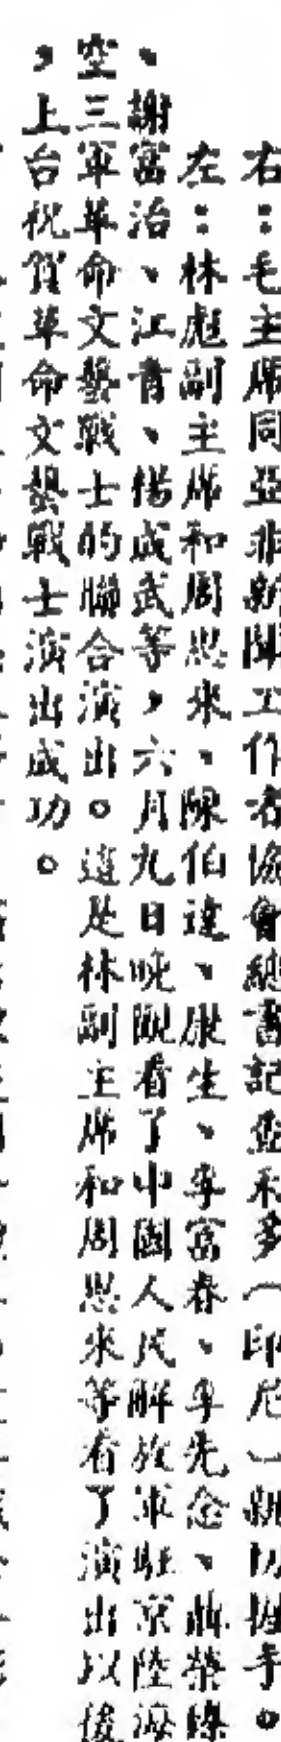 右：毛主席同亞非新聞工作者協會總書記查禾多（印尼）親切握手。
左：林彪副主席和周恩來、陳伯達、康生、李富春、李先念、聶榮臻
、謝富治、江青、楊成武等，六月九日晚觀看了中國人民解放軍駐京陸海
空三軍革命文藝戰士的聯合演出。這是林副主席和周恩來等看了演出以後
，上台祝賀革命文藝戰士演出成功。